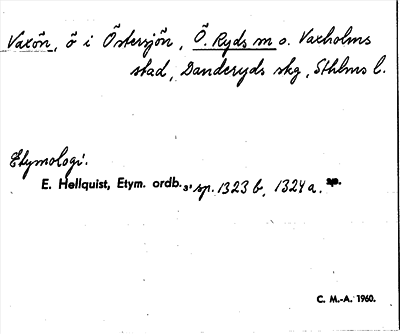 Vaxön, ö i Östersjön, Ö. Ryds sn o. Vaxholms
stad, Danderyds skg, Sthlms l.
Etymologi.
E. Hellquist, Etym. ordb.3, sp. 1323 b, 1324 a. sp.
C. M.-A. 1960.